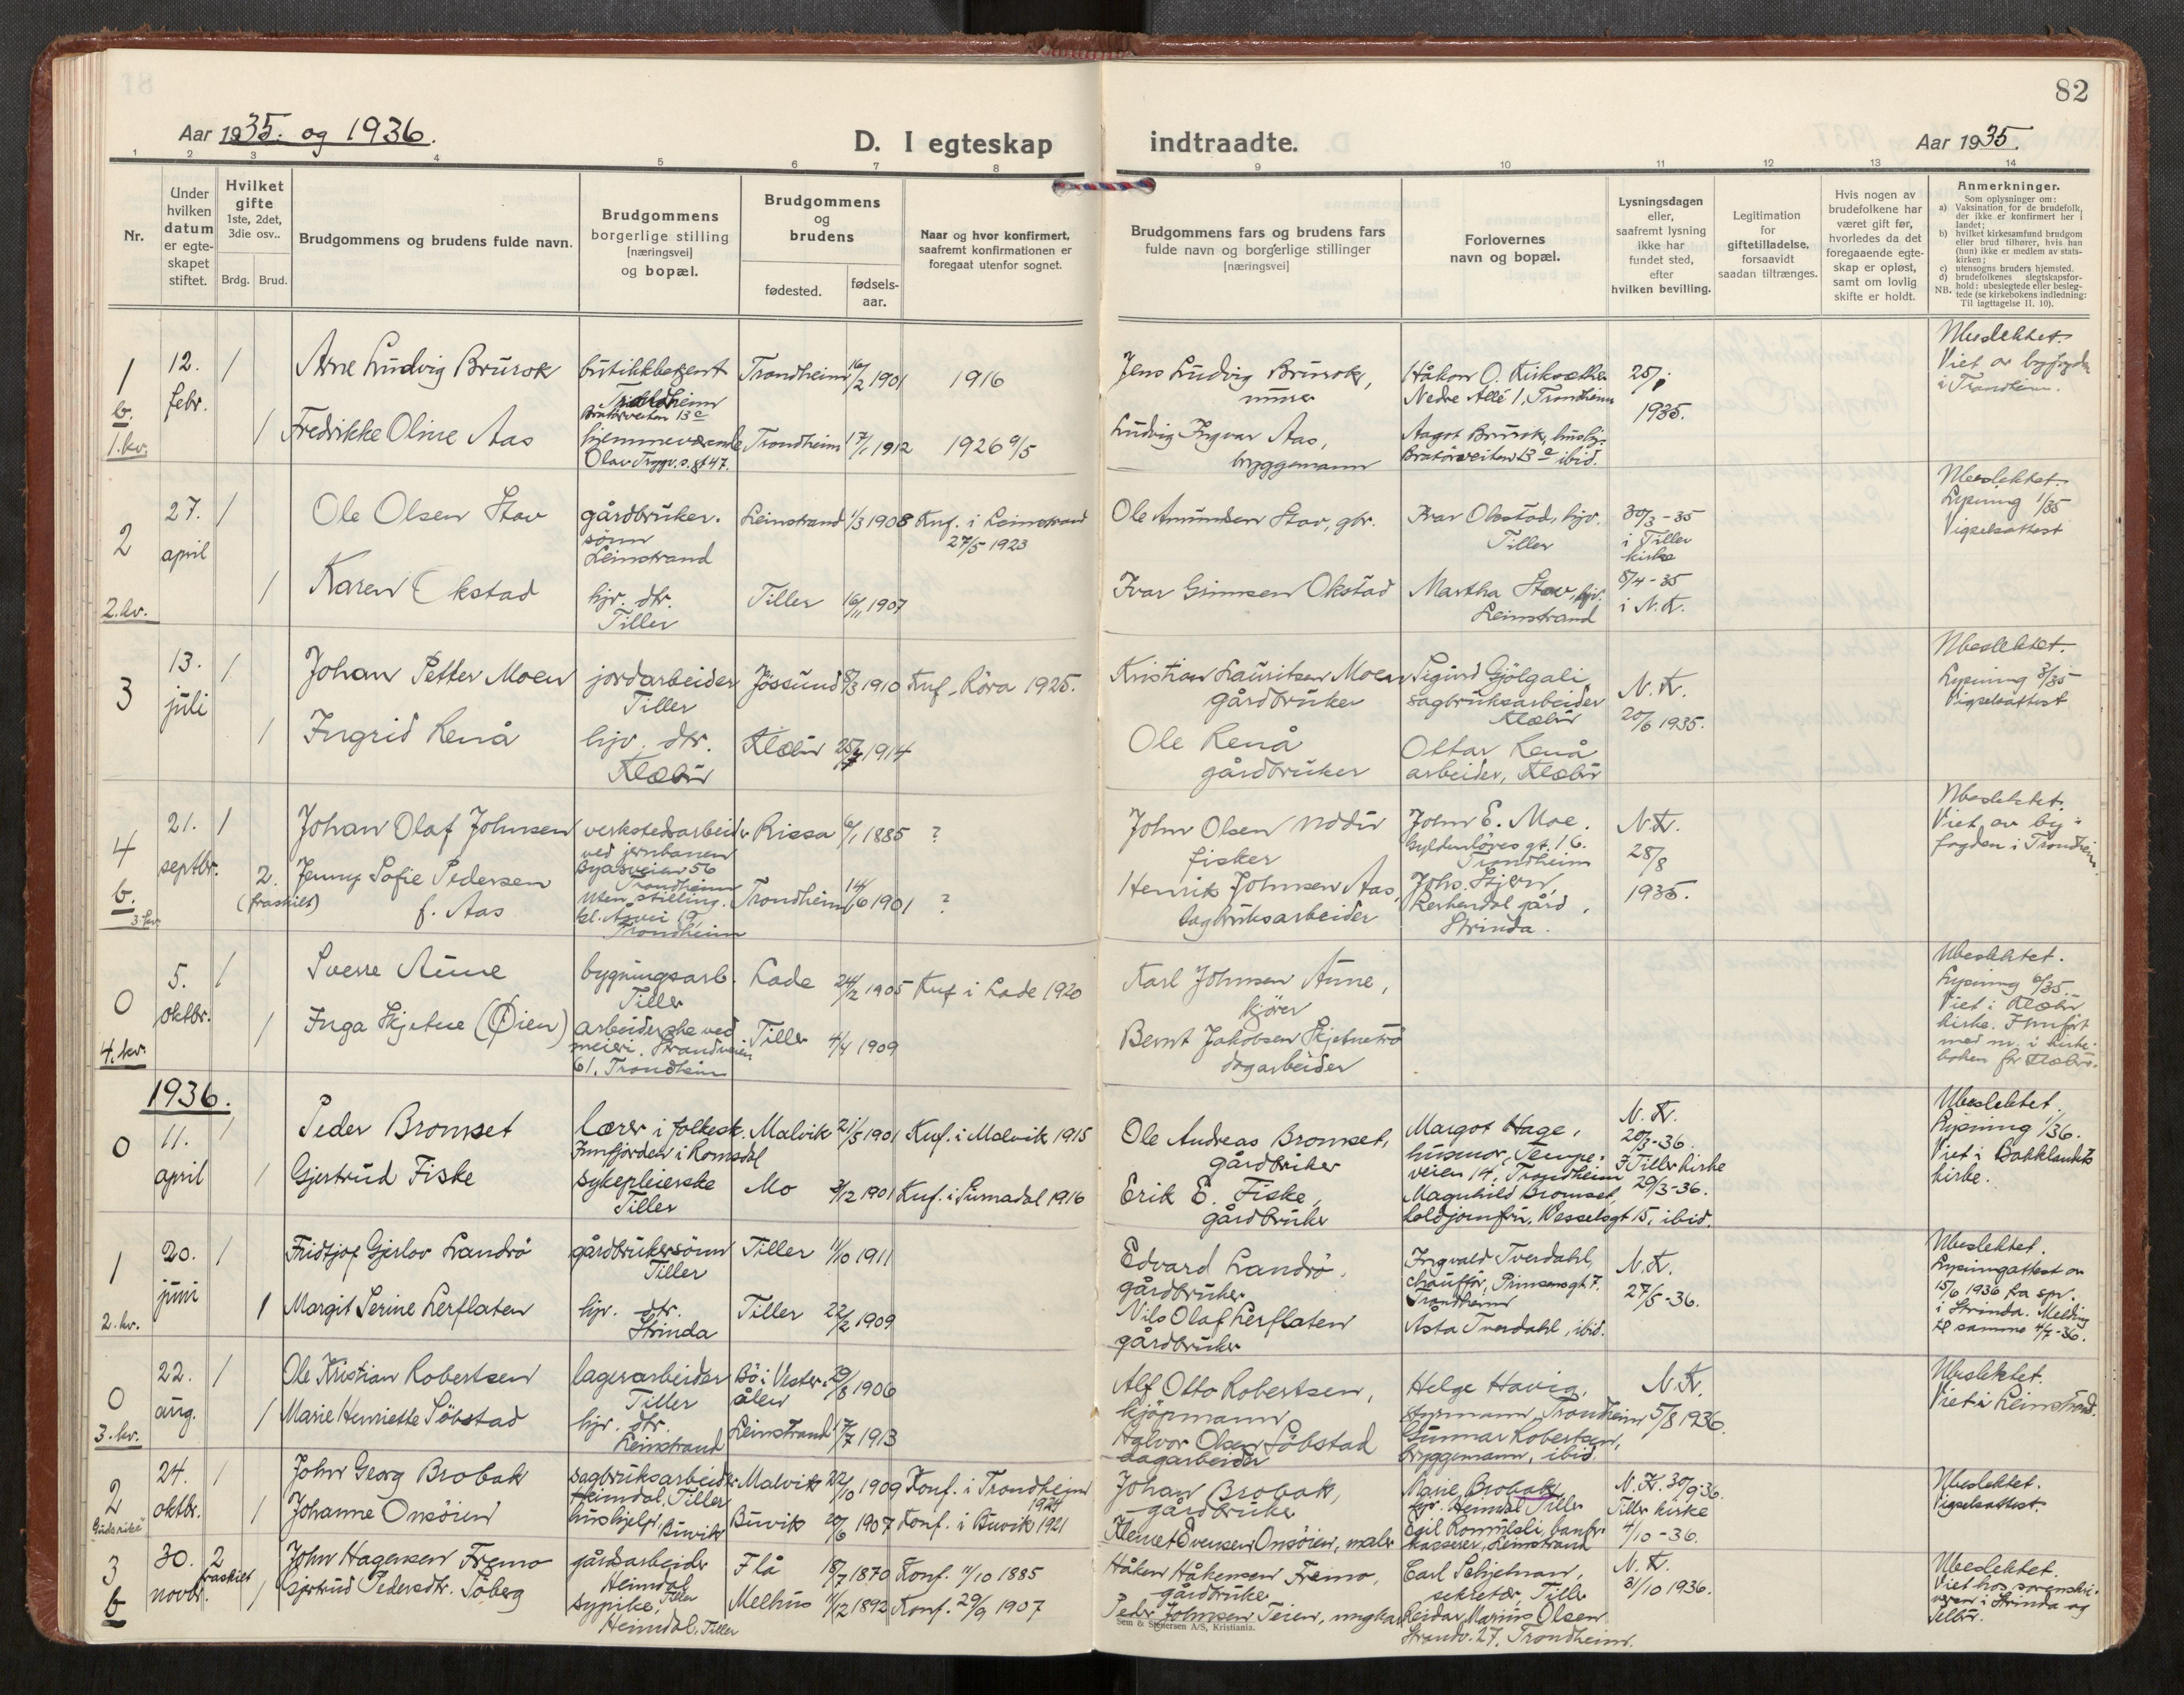 81
82
Aar 1935. og 1936.
D. I egteskap
indtraadte.
Aar 1935.
1
2
3
4
5
6
7
8
9
10
11
12
13
14
Nr.
Under
hvilken
datum
er egte-
skapet
stiftet.
Hvilket
gifte
1ste, 2det,
3die osv..
Brdg.
Brud.
Brudgommens og brudens fulde navn.
Brudgommens
borgerlige stilling
[næringsvei]
og bopæl.
Brudgommens
og
brudens
fødested.
fødsels-
aar.
Naar og hvor konfirmert,
saafremt konfirmationen er
foregaat utenfor sognet.
Brudgommens fars og brudens fars
fulde navn og borgerlige stillinger
[næringsvei]
Forlovernes
navn og bopæl.
Lysningsdagen
eller,
saafremt lysning
ikke har
fundet sted,
efter
hvilken bevilling.
Legitimation
for
giftetilladelse,
forsaavidt
saadan tiltrænges.
Hvis nogen av
brudefolkene har
været gift før,
hvorledes da det
foregaaende egte-
skap er opløst,
samt om lovlig
skifte er holdt.
Anmerkninger.
Som oplysninger om:
a) Vaksination for de brudefolk,
der ikke er konfirmert her i
landet;
b) hvilket kirkesamfund brudgom
eller brud tilhører, hvis han
(hun) ikke er medlem av stats-
kirken;
c) utensogns bruders hjemsted.
d) brudefolkenes slegtskapsfor-
hold: ubeslegtede eller besleg-
NB. tede (se kirkebokens indledning:
Til iagttagelse II. 10).
1
b.
1. kv.
12.
febr.
1
1
Arne Ludvig Brurok
Fredrikke Oline Aas
butikkbetjent
Trondheim
Bratørveiten 13c
hjemmeværende
Olav Trygv.s. gt 47.
Trondheim 16/2 1901
Trondheim 17/1 1912
1916
1926 9/5
Jens Ludvig Brurok,
murer
Ludvig Ingvar Aas,
bryggemann
Håkon O. Kirksæther
Nedre Allé 1, Trondheim
Aagot Brurok, husbj.
Bratørveiten 13c ibid.
25/1
1935.
Ubeslektet.
Viet av byfogden
i Trondheim.
2
2. kv.
27.
april
1
1
Ole Olsen Stav
Karen Okstad
gårdbruker-
sønn
Leinstrand
hjv. dtr.
Tiller
Leinstrand 1/3 1908
Tiller 16/11 1907
Knf. i Leinstrand
27/5 1923
Ole Amundsen Stav, gbr.
Ivar Grimsen Okstad
Ivar Okstad, hjv.
Tiller
Martha Stav, hjv.
Leinstrand
30/3 - 35
i Tiller
kirke
8/4 - 35
i N.K.
Ubeslektet.
Lysning 1/35
Vigselsattest
3
13.
juli
1
1
Johan Petter Moen
Ingrid Lenå
jordarbeider
Tiller
hjv. dtr.
Klæbu
Jössund 8/3 1910
Klæbu 25/7 1914
Knf. Röra 1925.
Kristian Lauritsen Moen
gårdbruker
Ole Lenå
gårdbruker
Sigurd Gjölgali
sagbruksarbeider
Klæbu
Ottar Lenå
arbeider, Klæbu
N.K.
20/6 1935.
Ubeslektet.
Lysning 3/35
Vigselsattest
4
b.
3. kv.
21.
septbr.
1
2.
(fraskilt)
Johan Olaf Johnsen
Jenny Sofie Pedersen
f. Aas
verkstedsarbeider
ved jernbanen
Byåsveien 56
Trondheim
Uten stilling.
Trondheim
Rissa 6/1 1885
Trondheim 14/6 1901
?
?
John Olsen
fisker
Henrik Johnsen Aas,
sagbruksarbeider
John E. Moe.
Gyldenlövesgt. 16.
Trondheim
Johs. Stjern,
Lerkendal gård,
Strinda.
N.K.
28/8
1935.
Ubeslektet.
Viet av by-
fogden i Trondheim.
0
4. kv.
5.
oktbr.
1
1
Sverre Aune
Inga Skjetne (Øien)
bygningsarb.
Tiller
arbeiderske ved
meieri. Strandveien
61. Trondheim
Lade 24/2 1905
Tiller 4/4 1909
Knf. i Lade 1920
Karl Johnsen Aune,
kjörer
Bernt Jakobsen Skjetnetrö
dagarbeider
Ubeslektet.
Lysning 6/35
Viet i Klæbu
kirke. Innfört
med nr. i kirke-
boken for Klæbu.
1936.
0
11.
april
1
1
Peder Bromset
Gjertrud Fiske
lærer i folkesk.
Innfjorden i Romsdal
sykepleierske
Tiller
Malvik 21/5 1901
Mo 3/12 1901
Knf. i Malvik 1915
Knf. i Surnadal 1916
Ole Andreas Bromset,
gårdbruker
Erik E. Fiske,
gårdbruker
Margot Hage,
husmor, Tempe-
veien 14, Trondheim
Magnhild Bromset,
koldjomfru, Wesselsgt 15, ibid.
N.K.
20/3-36.
I Tiller kirke
29/3-36.
Ubeslektet.
Lysning 1/36.
Viet i Bakklandets
kirke.
1
2. kv.
20.
juni
1
1
Fridtjof Gjerlov Landrö
Margit Serine Lerflaten
gårdbrukersönn
Tiller
hjv. dtr.
Strinda
Tiller 11/10 1911
Tiller 22/2 1909
Edvard Landrö.
gårdbruker
Nils Olaf Lerflaten
gårdbruker
Ingvald Tverdahl,
chauffør, Prinsensgt. 7.
Trondheim
Asta Tverdahl, ibid.
N.K.
27/5-36.
Ubeslektet.
Lysningsattest av
15/6 1936 fra spr.
i Strinda. Melding
til samme 4/7-36.
0
3. kv.
22.
aug.
1
1
Ole Kristian Robertsen
Marie Henriette Söbstad
lagerarbeider
Tiller
hjv. dtr.
Leinstrand
Bö i Vester- 29/8 1906
ålen
Leinstrand 17/7 1913
Alf Otto Robertsen,
kjöpmann
Halvor Olsen Söbstad
dagarbeider
Helge Havig,
styrmann, Trondheim
Gunnar Robertsen,
bryggemann, ibid.
N.K.
5/8 1936.
Ubeslektet.
Viet i Leinstrand.
2
24.
oktbr.
1
1
John Georg Brobak
Johanne Onsöien
sagbruksarbeider
Heimdal, Tiller
hushjelp, Buvik
Malvik 22/10 1909
Buvik 20/6 1907
Konf. i Trondheim
1924
Konf. i Buvik 1921
Johan Brobak,
gårdbruker
Klemet Evensen Onsöien, maler
Marie Brobak,
hjv. Heimdal, Tiller
Egil Romulsli, bank-
kasserer, Leinstrand
N.K. 30/9 36.
Tiller kirke
4/10-36.
Ubeslektet.
Vigselsattest.
3
b
30.
novbr.
2
fraskilt
1
John Hagensen Fremo
Gjertrud Pedersdtr. Söberg
gårdsarbeider
Heimdal, Tiller
sypike,
Heimdal, Tiller
Flå 18/7 1870
Melhus 11/12 1892
Konf. 11/10 1885
Konf. 29/9 1907
Håken Håkensen Fremo,
gårdbruker
Peder Johnsen Teien, ungkar
Carl Schjetnan,
sekretær, Tiller
Reidar Marius Olsen
Strandv. 27, Trondheim.
N.K.
31/10 1936.
Ubeslektet.
Viet hos sorenskri-
veren i Strinda og
Selbu.
Sem & Stenersen A/S, Kristiania.